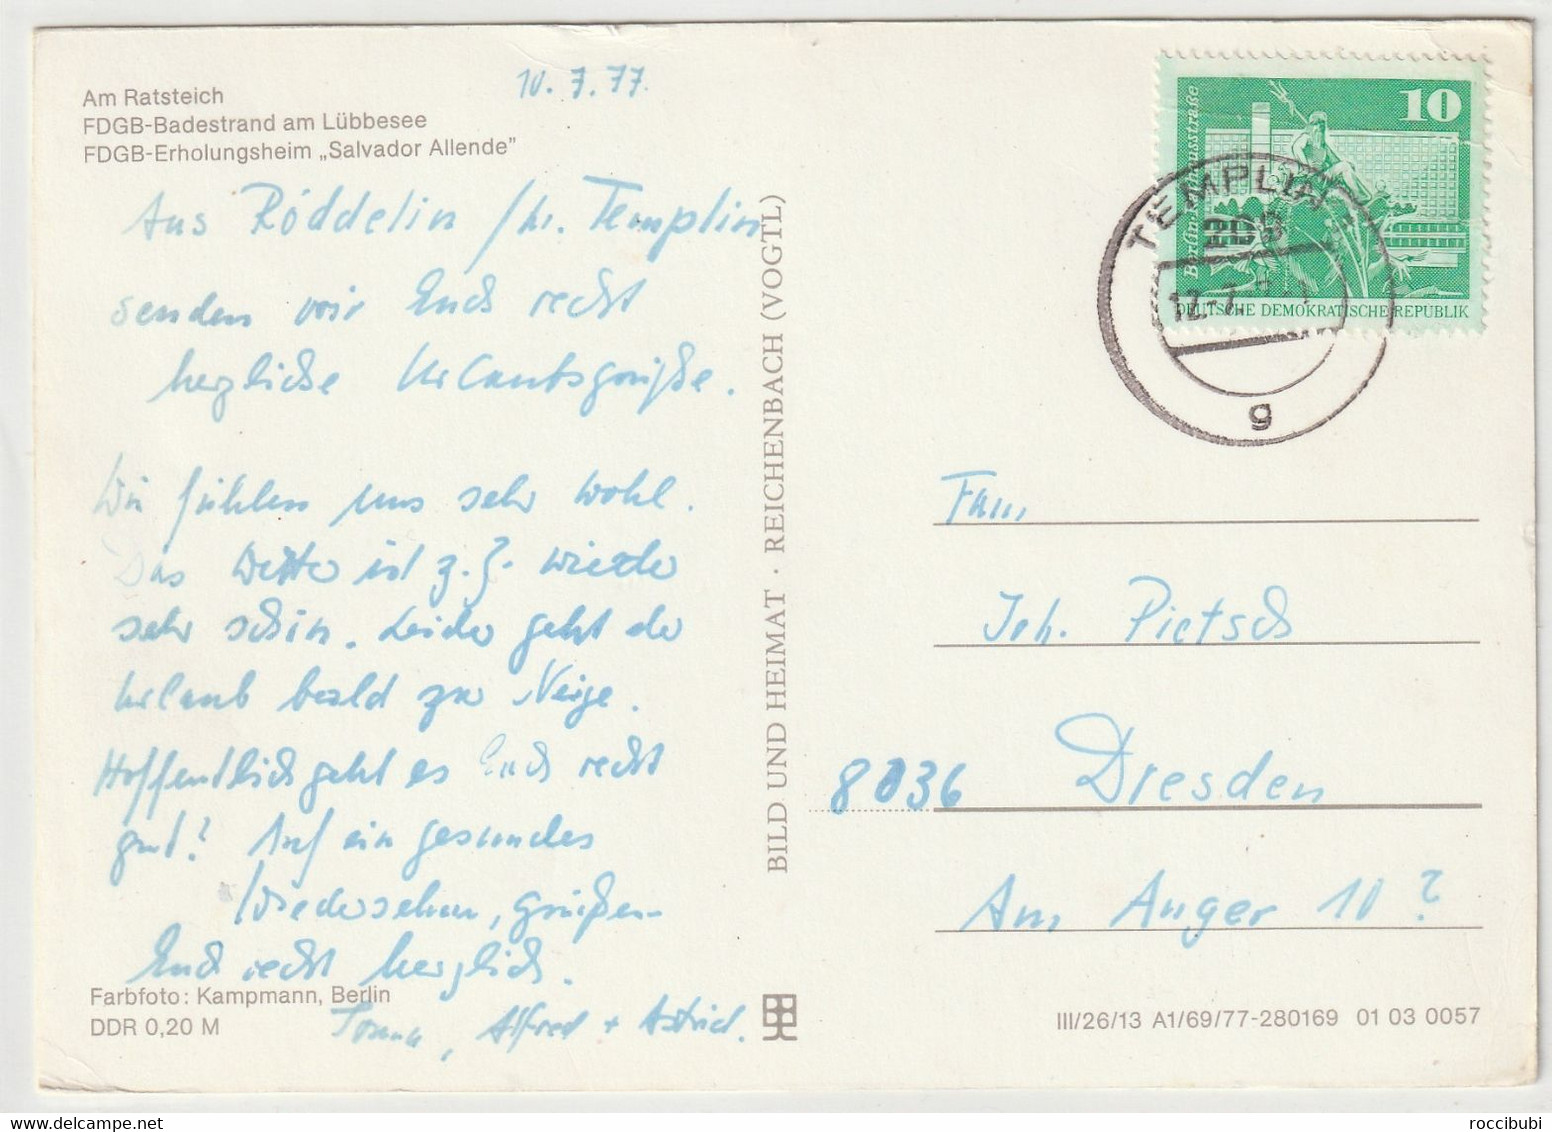 Am Ratsteich
FDGB-Badestrand am Lübbesee
FDGB-Erholungsheim „Salvador Allende"
10.7.77.
Aus Röddelin / Kr. Templin
senden wir Euch recht
herzliche Urlaubsgrüße.
Wir fühlen uns sehr wohl.
Das Wetter ist z.Z. wieder
sehr schön. Leider geht der
Urlaub bald zur Neige.
Hoffentlich geht es Euch recht
gut? Auf ein gesundes
Wiedersehen, grüßen
Euch recht herzlich.
Alfred + Astrid.
Farbfoto: Kampmann, Berlin
DDR 0,20 M
BILD UND HEIMAT · REICHENBACH (VOGTL)
10
DEUTSCHE DEMOKRATISCHE REPUBLIK
TEMPLIN
12.-7.
g
Fam.
Joh. Pietsch
8036 Dresden
Am Anger 10?
III/26/13 A1/69/77-280169 01 03 0057
roccibubi